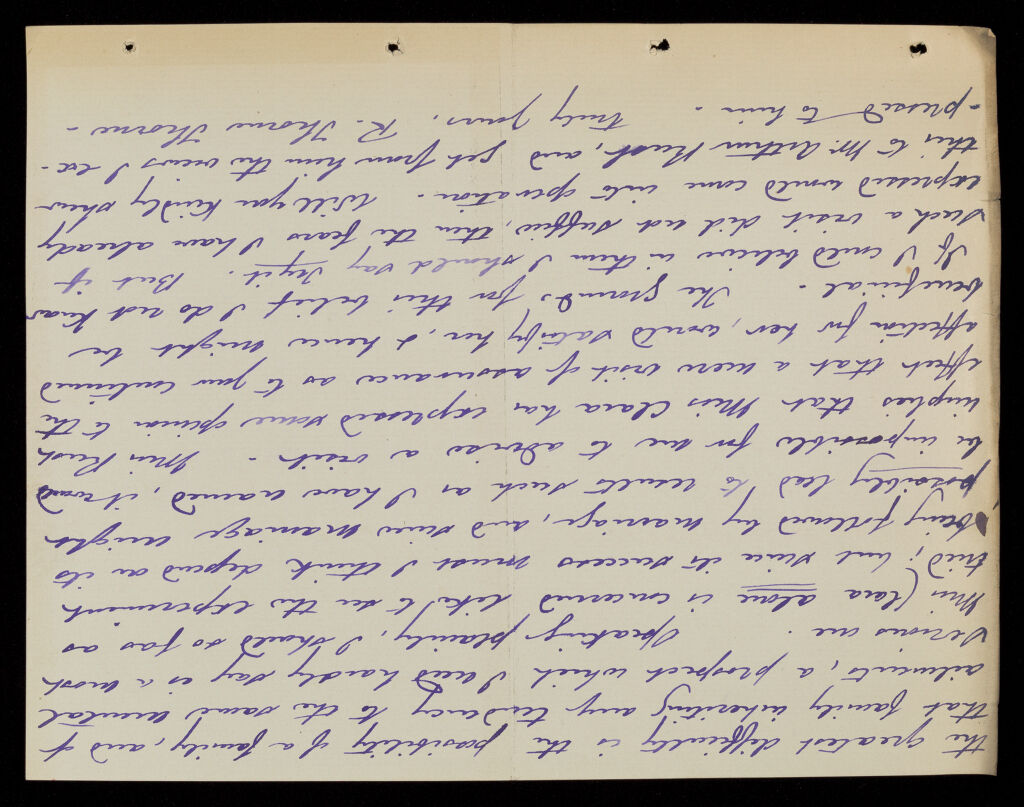 the greatest difficulty is the possibility of a family, and of
that family inheriting any tendency to the same mental
ailments, a prospect which I need hardly say is a most
serious one. Speaking plainly, I should so far as
Miss Clara alone is concerned like to see the experiment
tried; but since its success must I think depend on its
being followed by marriage, and since marriage might
possibly lead to results such as I have named, it would
be impossible for me to advise a visit. Miss Rush
implies that Miss Clara has expressed some opinion to the
effect that a mere visit of assurance as to your continued
affection for her, would satisfy her, & hence might be
beneficial. The grounds for this belief I do not know
If I could believe in them I should say Try it. But if
such a visit did not suffice, then the fears I have already
expressed would come into operation. Will you kindly show
this to Mr. Arthur Rush, and get from him the views I ex-
-pressed to him. truly yours, R. Thorne Thorne-